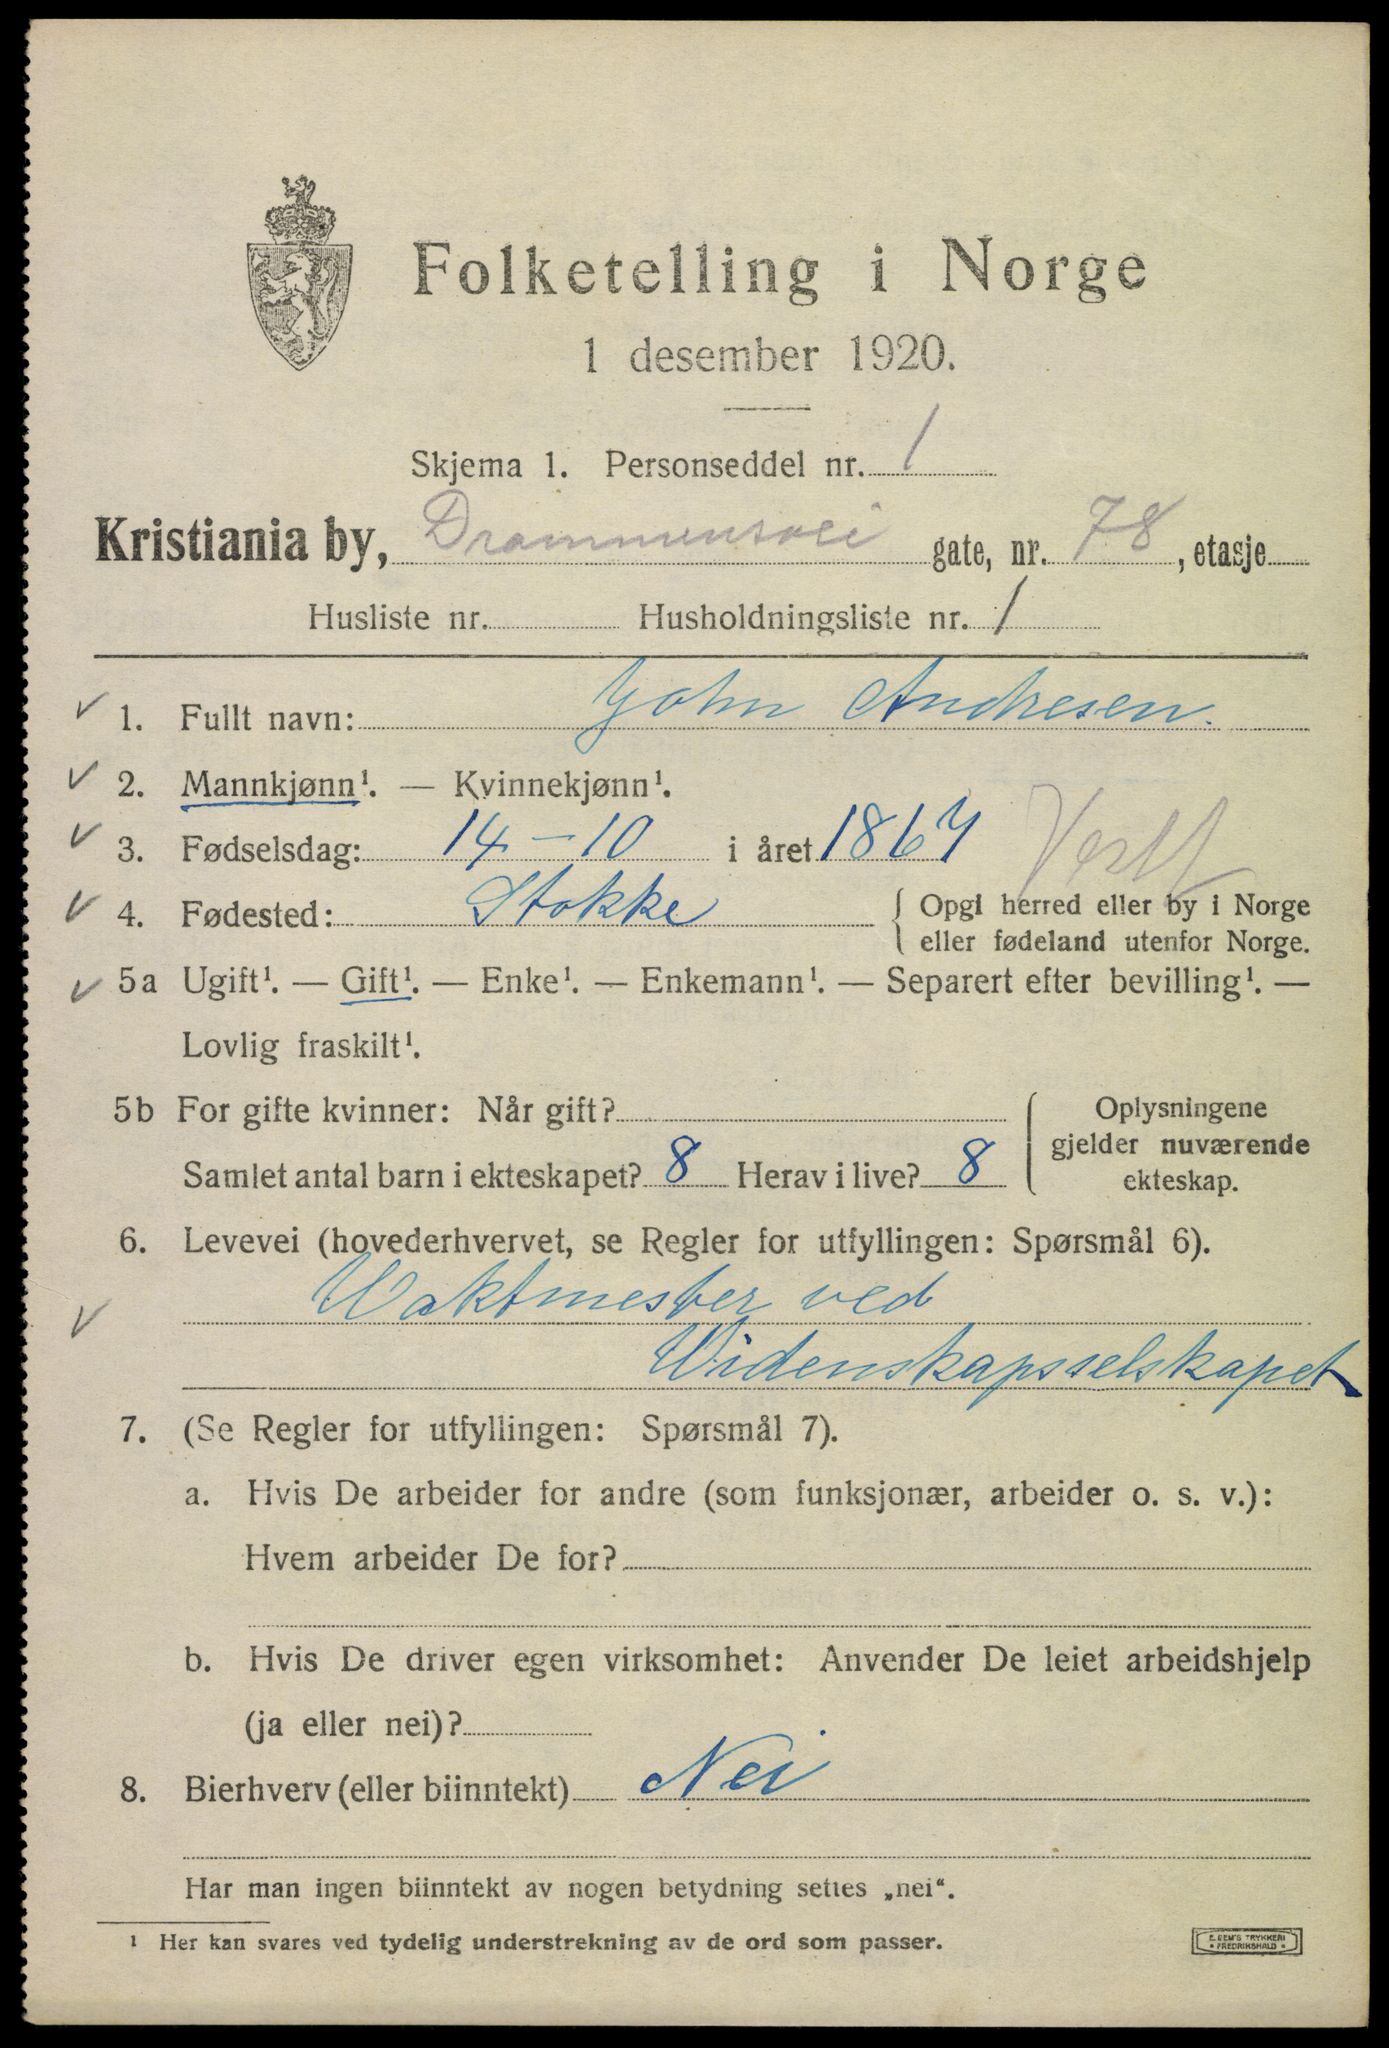 Folketelling i Norge
1 desember 1920.
Skjema 1. Personseddel nr. 1
Kristiania by, Drammensvei gate, nr. 78, etasje
Husliste nr. Husholdningsliste nr. 1
1. Fullt navn: John Andresen.
2. Mannkjønn¹. — Kvinnekjønn¹.
3. Fødselsdag: 14-10 i året 1867
Vestf
4. Fødested: Stokke { Opgi herred eller by i Norge
eller fødeland utenfor Norge.
5a Ugift¹. — Gift¹. — Enke¹. — Enkemann¹. — Separert efter bevilling¹. —
Lovlig fraskilt¹.
5b For gifte kvinner: Når gift?
Samlet antal barn i ekteskapet? 8 Herav i live? 8
Oplysningene
gjelder nuværende
ekteskap.
6. Levevei (hovederhvervet, se Regler for utfyllingen: Spørsmål 6).
Vaktmester ved
Widenskapsselskapet
7. (Se Regler for utfyllingen: Spørsmål 7).
a. Hvis De arbeider for andre (som funksjonær, arbeider o. s. v.):
Hvem arbeider De for?
b. Hvis De driver egen virksomhet: Anvender De leiet arbeidshjelp
(ja eller nei)?
8. Bierhverv (eller biinntekt) Nei
Har man ingen biinntekt av nogen betydning settes „nei“.
¹ Her kan svares ved tydelig understrekning av de ord som passer.
E. SEM'S TRYKKERI
• FREDRIKSHALD •